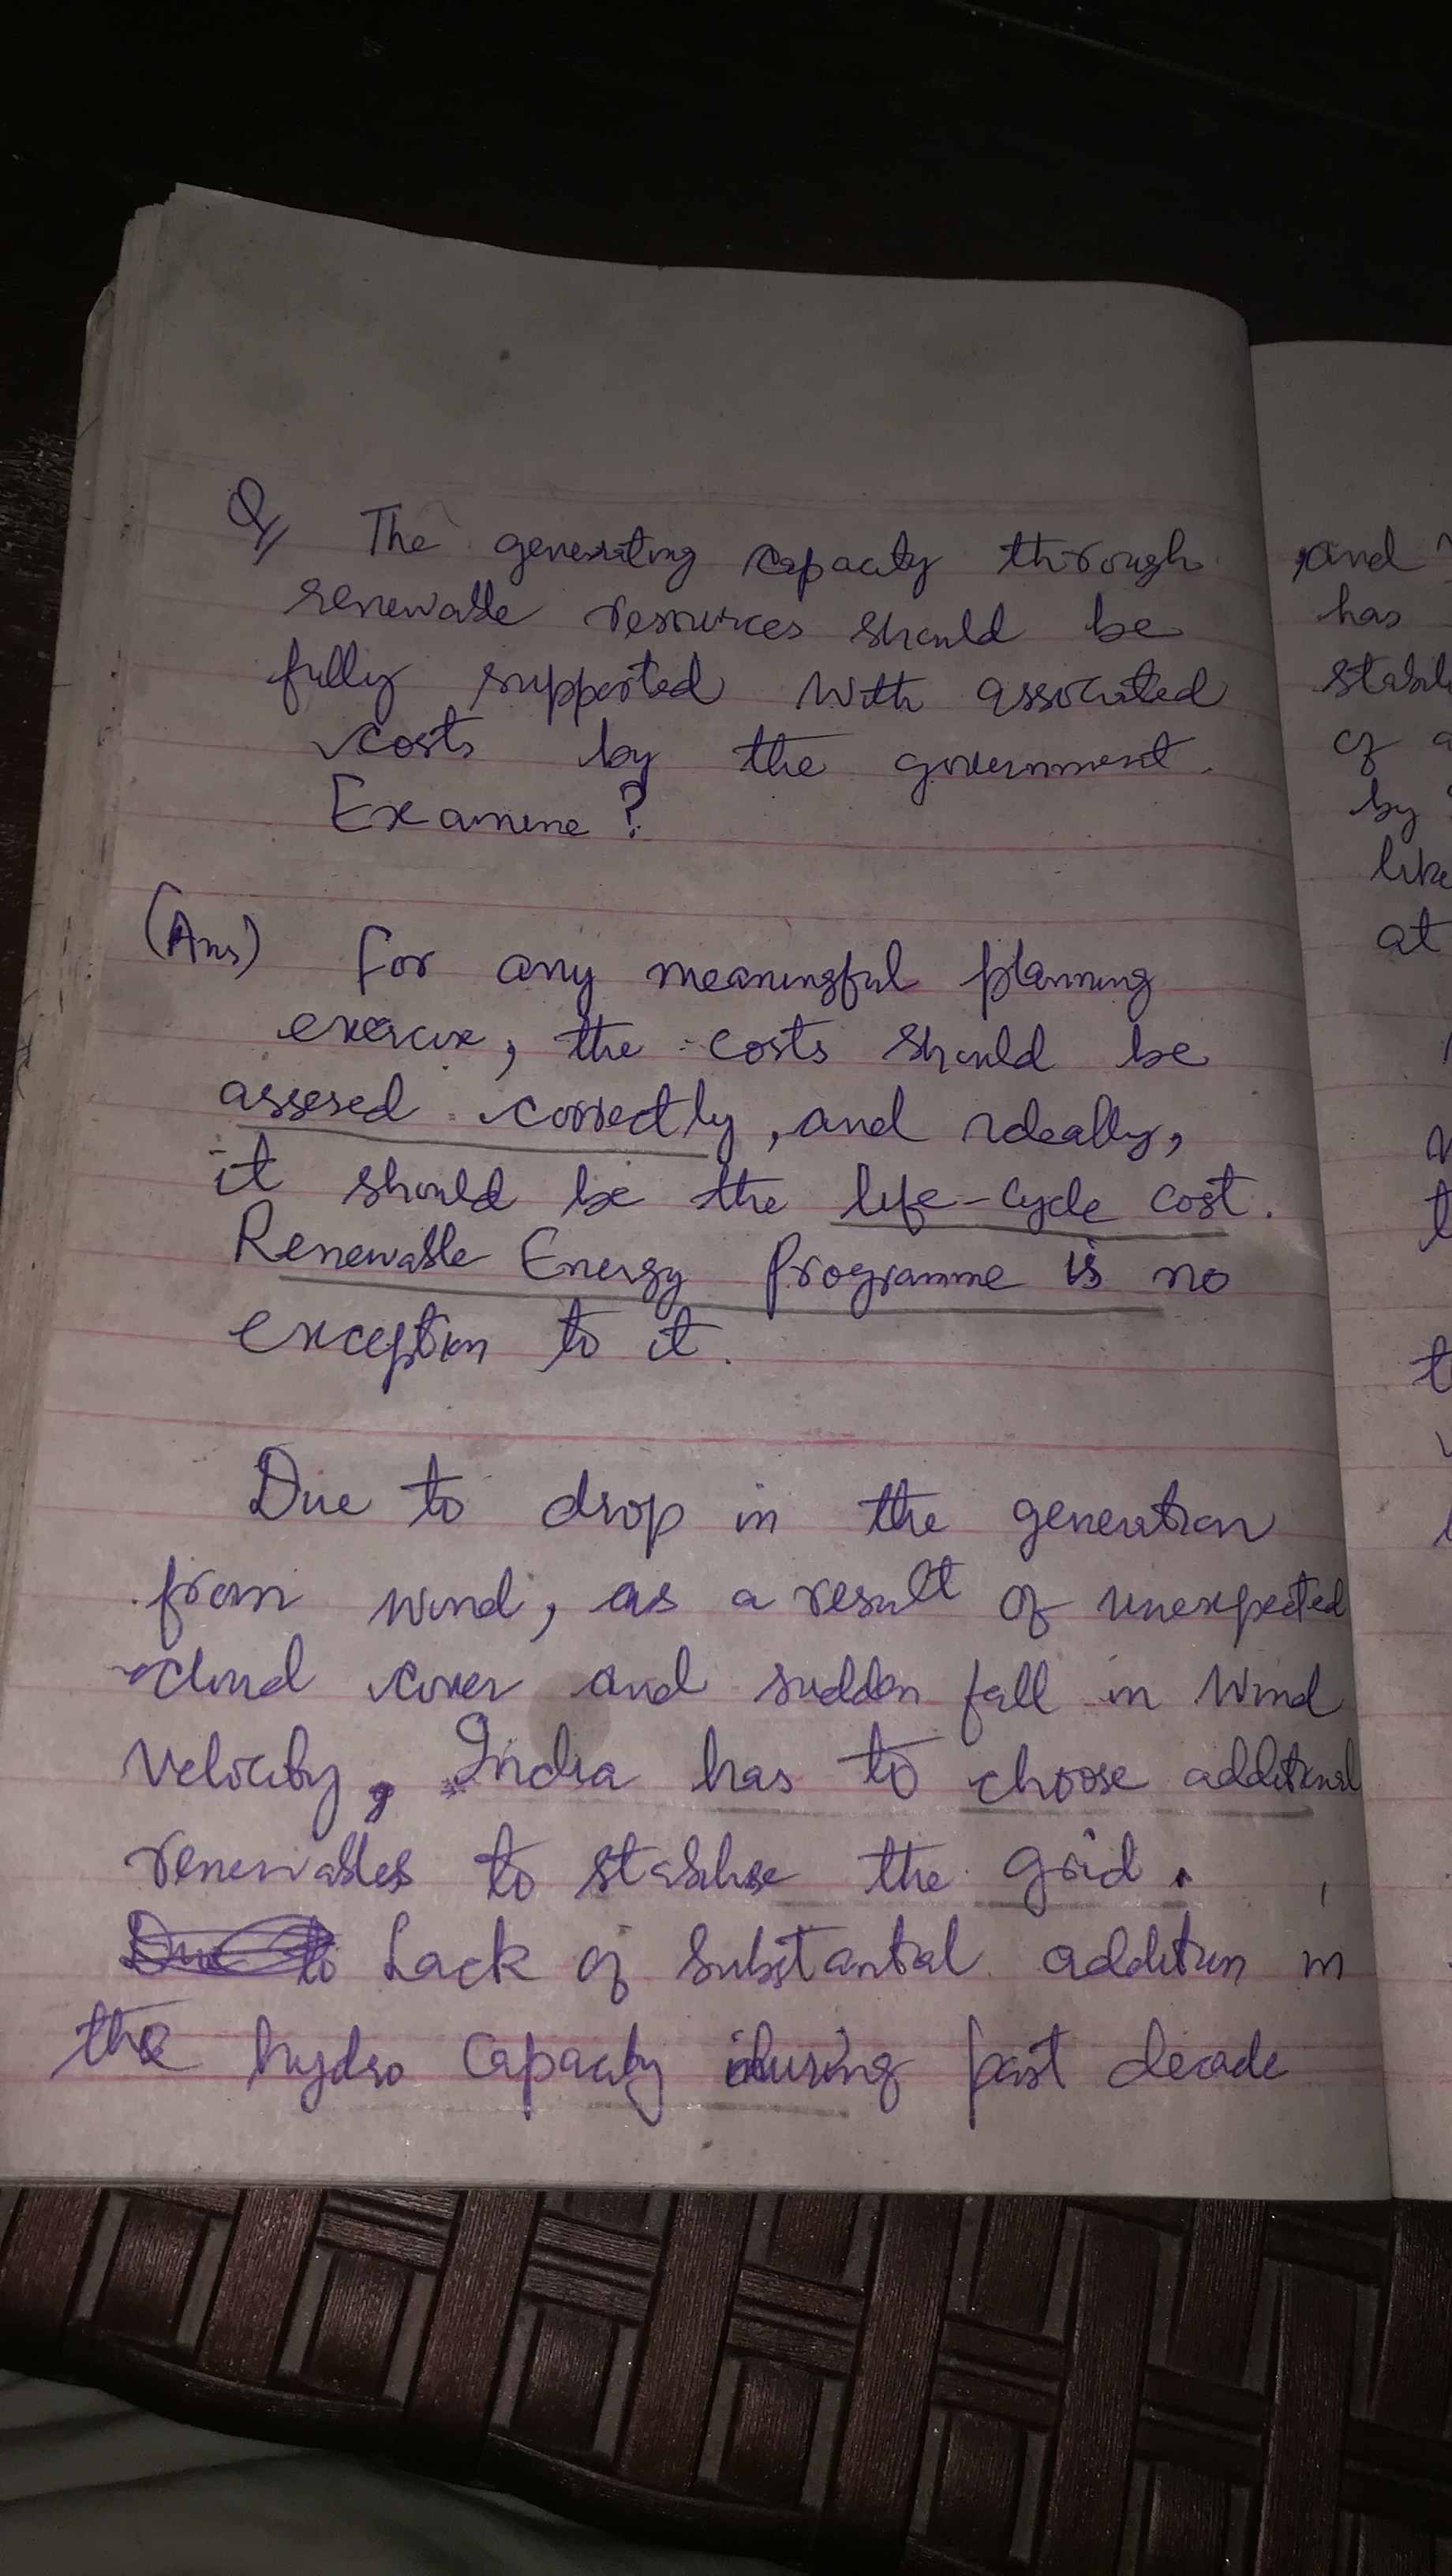 Q// The generating capacity through
renewable resources should be
fully supported with associated
costs by the government.
Examine?
(Ans) For any meaningful planning
exercise, the costs should be
assesed correctly, and ideally,
it should be the life-cycle cost.
Renewable Energy Programme is no
exception to it.
Due to drop in the generation
from wind, as a result of unexpected
cloud cover and sudden fall in wind
velocity, India has to choose additional
renewables to stabilise the grid.
Lack of substantial addition in
the hydro capacity during past decade
and
has
of
by
like
at